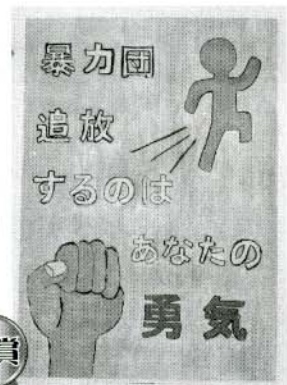 暴力団
追放
するのは
あなたの
勇気
賞